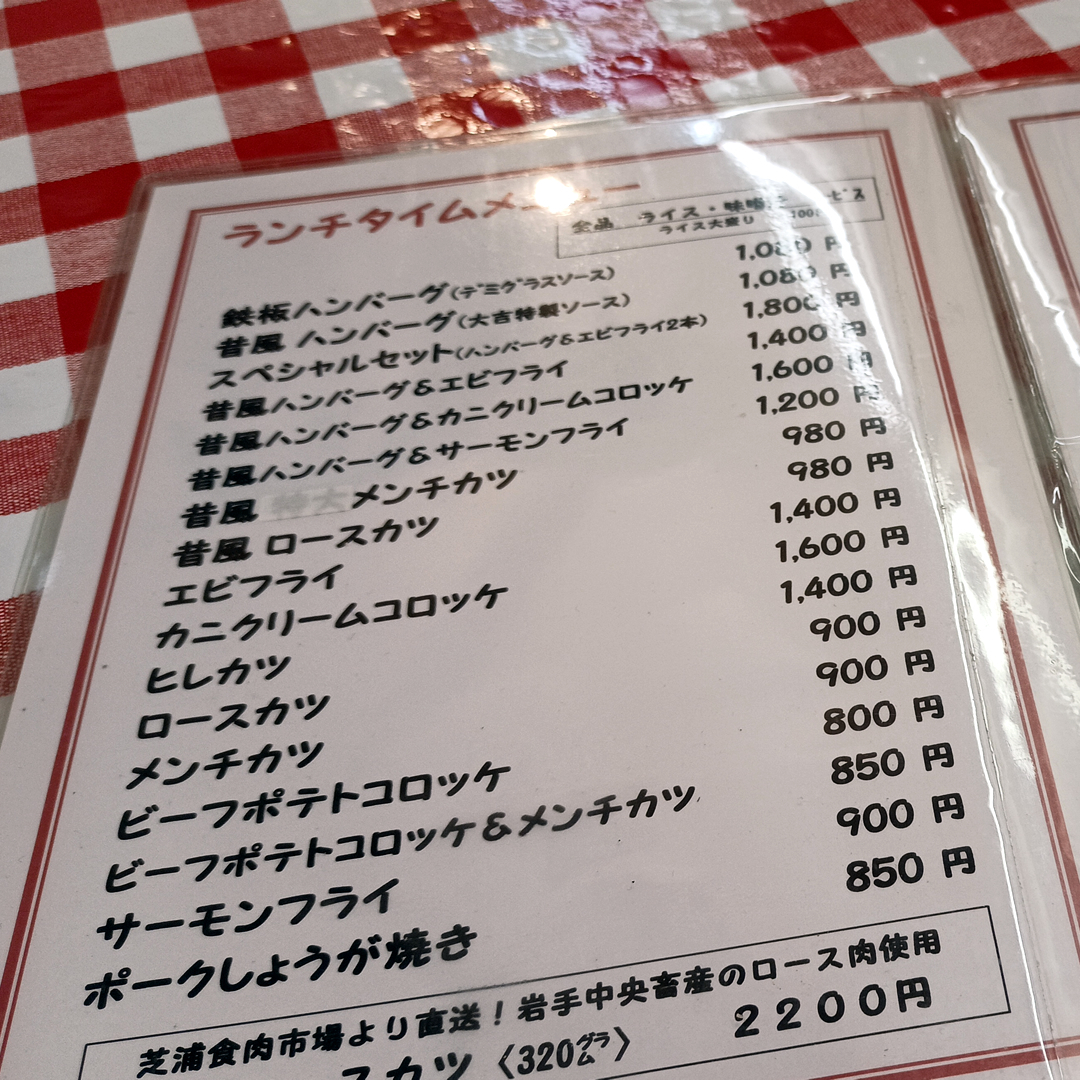 ランチタイムメニュー
全品 ライス・味噌
ライス大盛り
鉄板ハンバーグ(デミグラスソース) 1,080 円
昔風 ハンバーグ(大吉特製ソース) 1,080 円
スペシャルセット(ハンバーグ&エビフライ2本) 1,800 円
昔風ハンバーグ&エビフライ 1,400 円
昔風ハンバーグ&カニクリームコロッケ 1,600 円
昔風ハンバーグ&サーモンフライ 1,200 円
昔風 特大メンチカツ 980 円
昔風 ロースカツ 980 円
エビフライ 1,400 円
カニクリームコロッケ 1,600 円
ヒレカツ 1,400 円
ロースカツ 900 円
メンチカツ 900 円
ビーフポテトコロッケ 800 円
ビーフポテトコロッケ&メンチカツ 850 円
サーモンフライ 900 円
ポークしょうが焼き 850 円
芝浦食肉市場より直送!岩手中央畜産のロース肉使用
スカツ〈320グラム〉 2200円